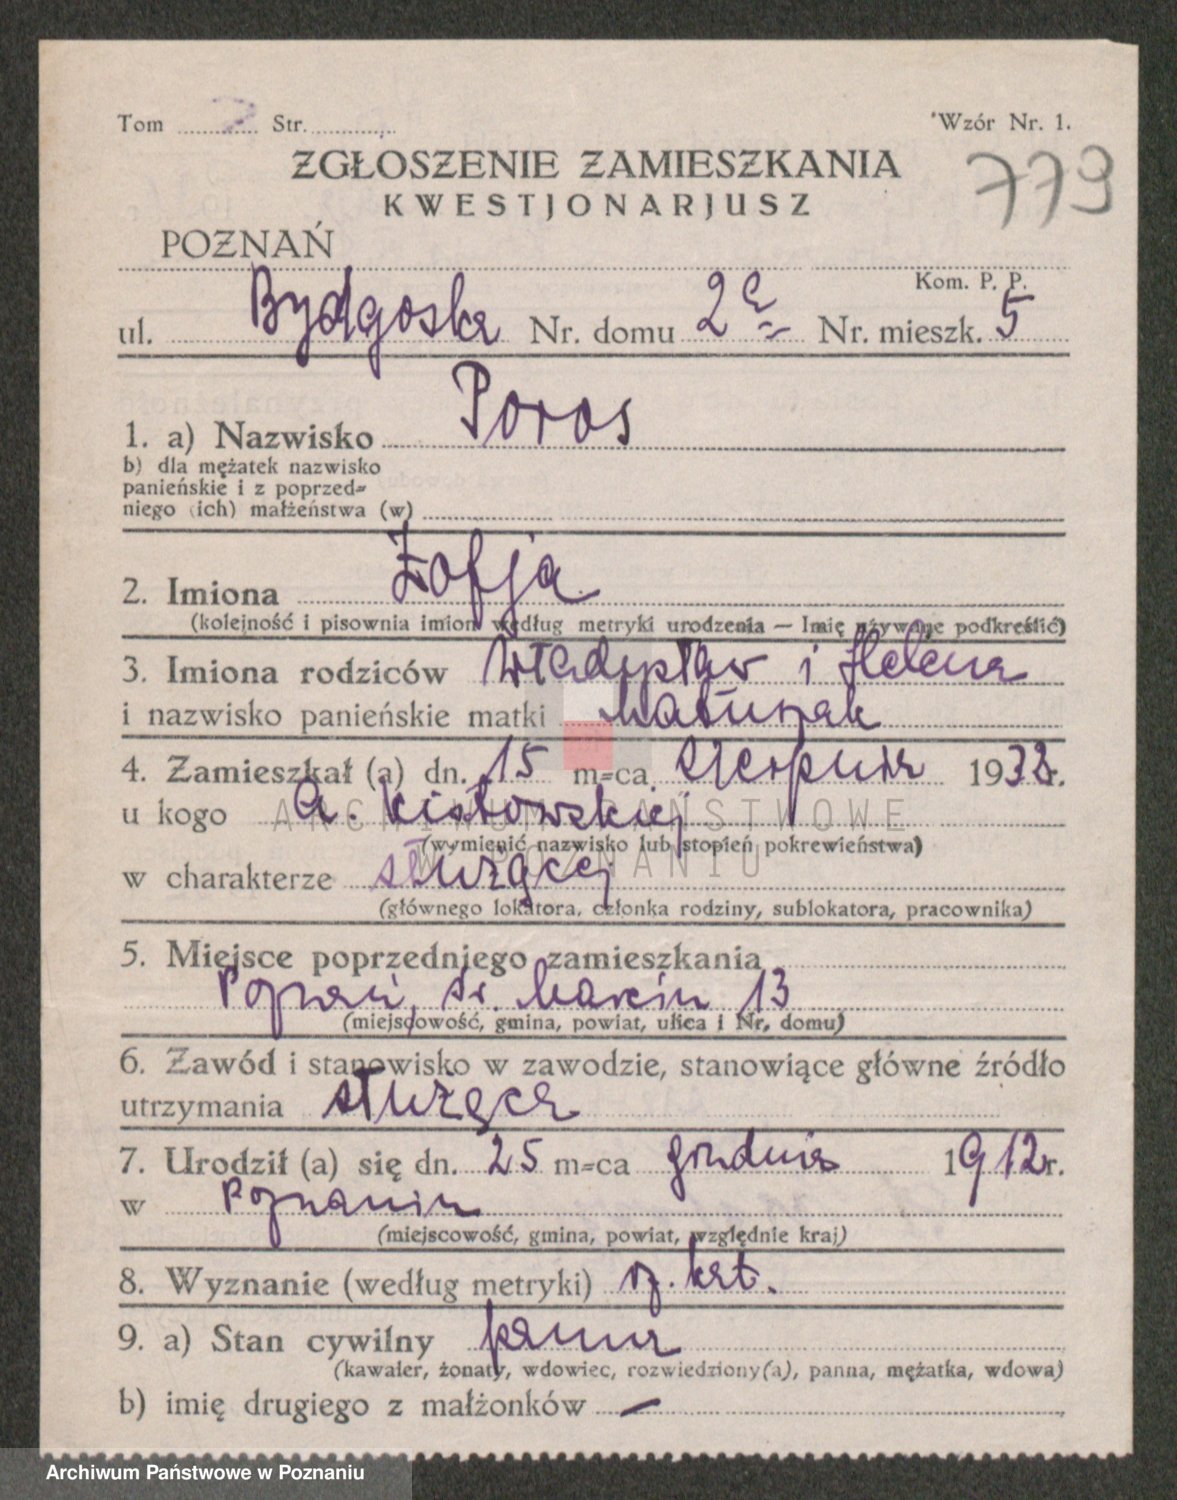 Tom Str. Wzór Nr. 1.
ZGŁOSZENIE ZAMIESZKANIA
779
KWESTJONARJUSZ
POZNAŃ
Kom. P. P.
ul. Bydgoska Nr. domu 2 Nr. mieszk. 5
1. a) Nazwisko Poros
b) dla mężatek nazwisko
panieńskie i z poprzed=
niego (ich) małżeństwa (w)
2. Imiona Zofja
(kolejność i pisownia imion według metryki urodzenia — Imię używane podkreślić)
3. Imiona rodziców Władysław i Helena
i nazwisko panieńskie matki Matuszak
4. Zamieszkał (a) dn. 15 m=ca sierpnia 1933 r.
u kogo A. Kistowskiej
(wymienić nazwisko lub stopień pokrewieństwa)
ARCHIWUM PAŃSTWOWE
W POZNANIU
w charakterze służącej
(głównego lokatora, członka rodziny, sublokatora, pracownika)
5. Miejsce poprzedniego zamieszkania
Poznań, św. Marcin 13
(miejscowość, gmina, powiat, ulica i Nr. domu)
6. Zawód i stanowisko w zawodzie, stanowiące główne źródło
utrzymania służąca
7. Urodził (a) się dn. 25 m=ca grudnia 1912 r.
w Poznaniu
(miejscowość, gmina, powiat, względnie kraj)
8. Wyznanie (według metryki) rz. kat.
9. a) Stan cywilny panna
(kawaler, żonaty, wdowiec, rozwiedziony(a), panna, mężatka, wdowa)
b) imię drugiego z małżonków —
Archiwum Państwowe w Poznaniu